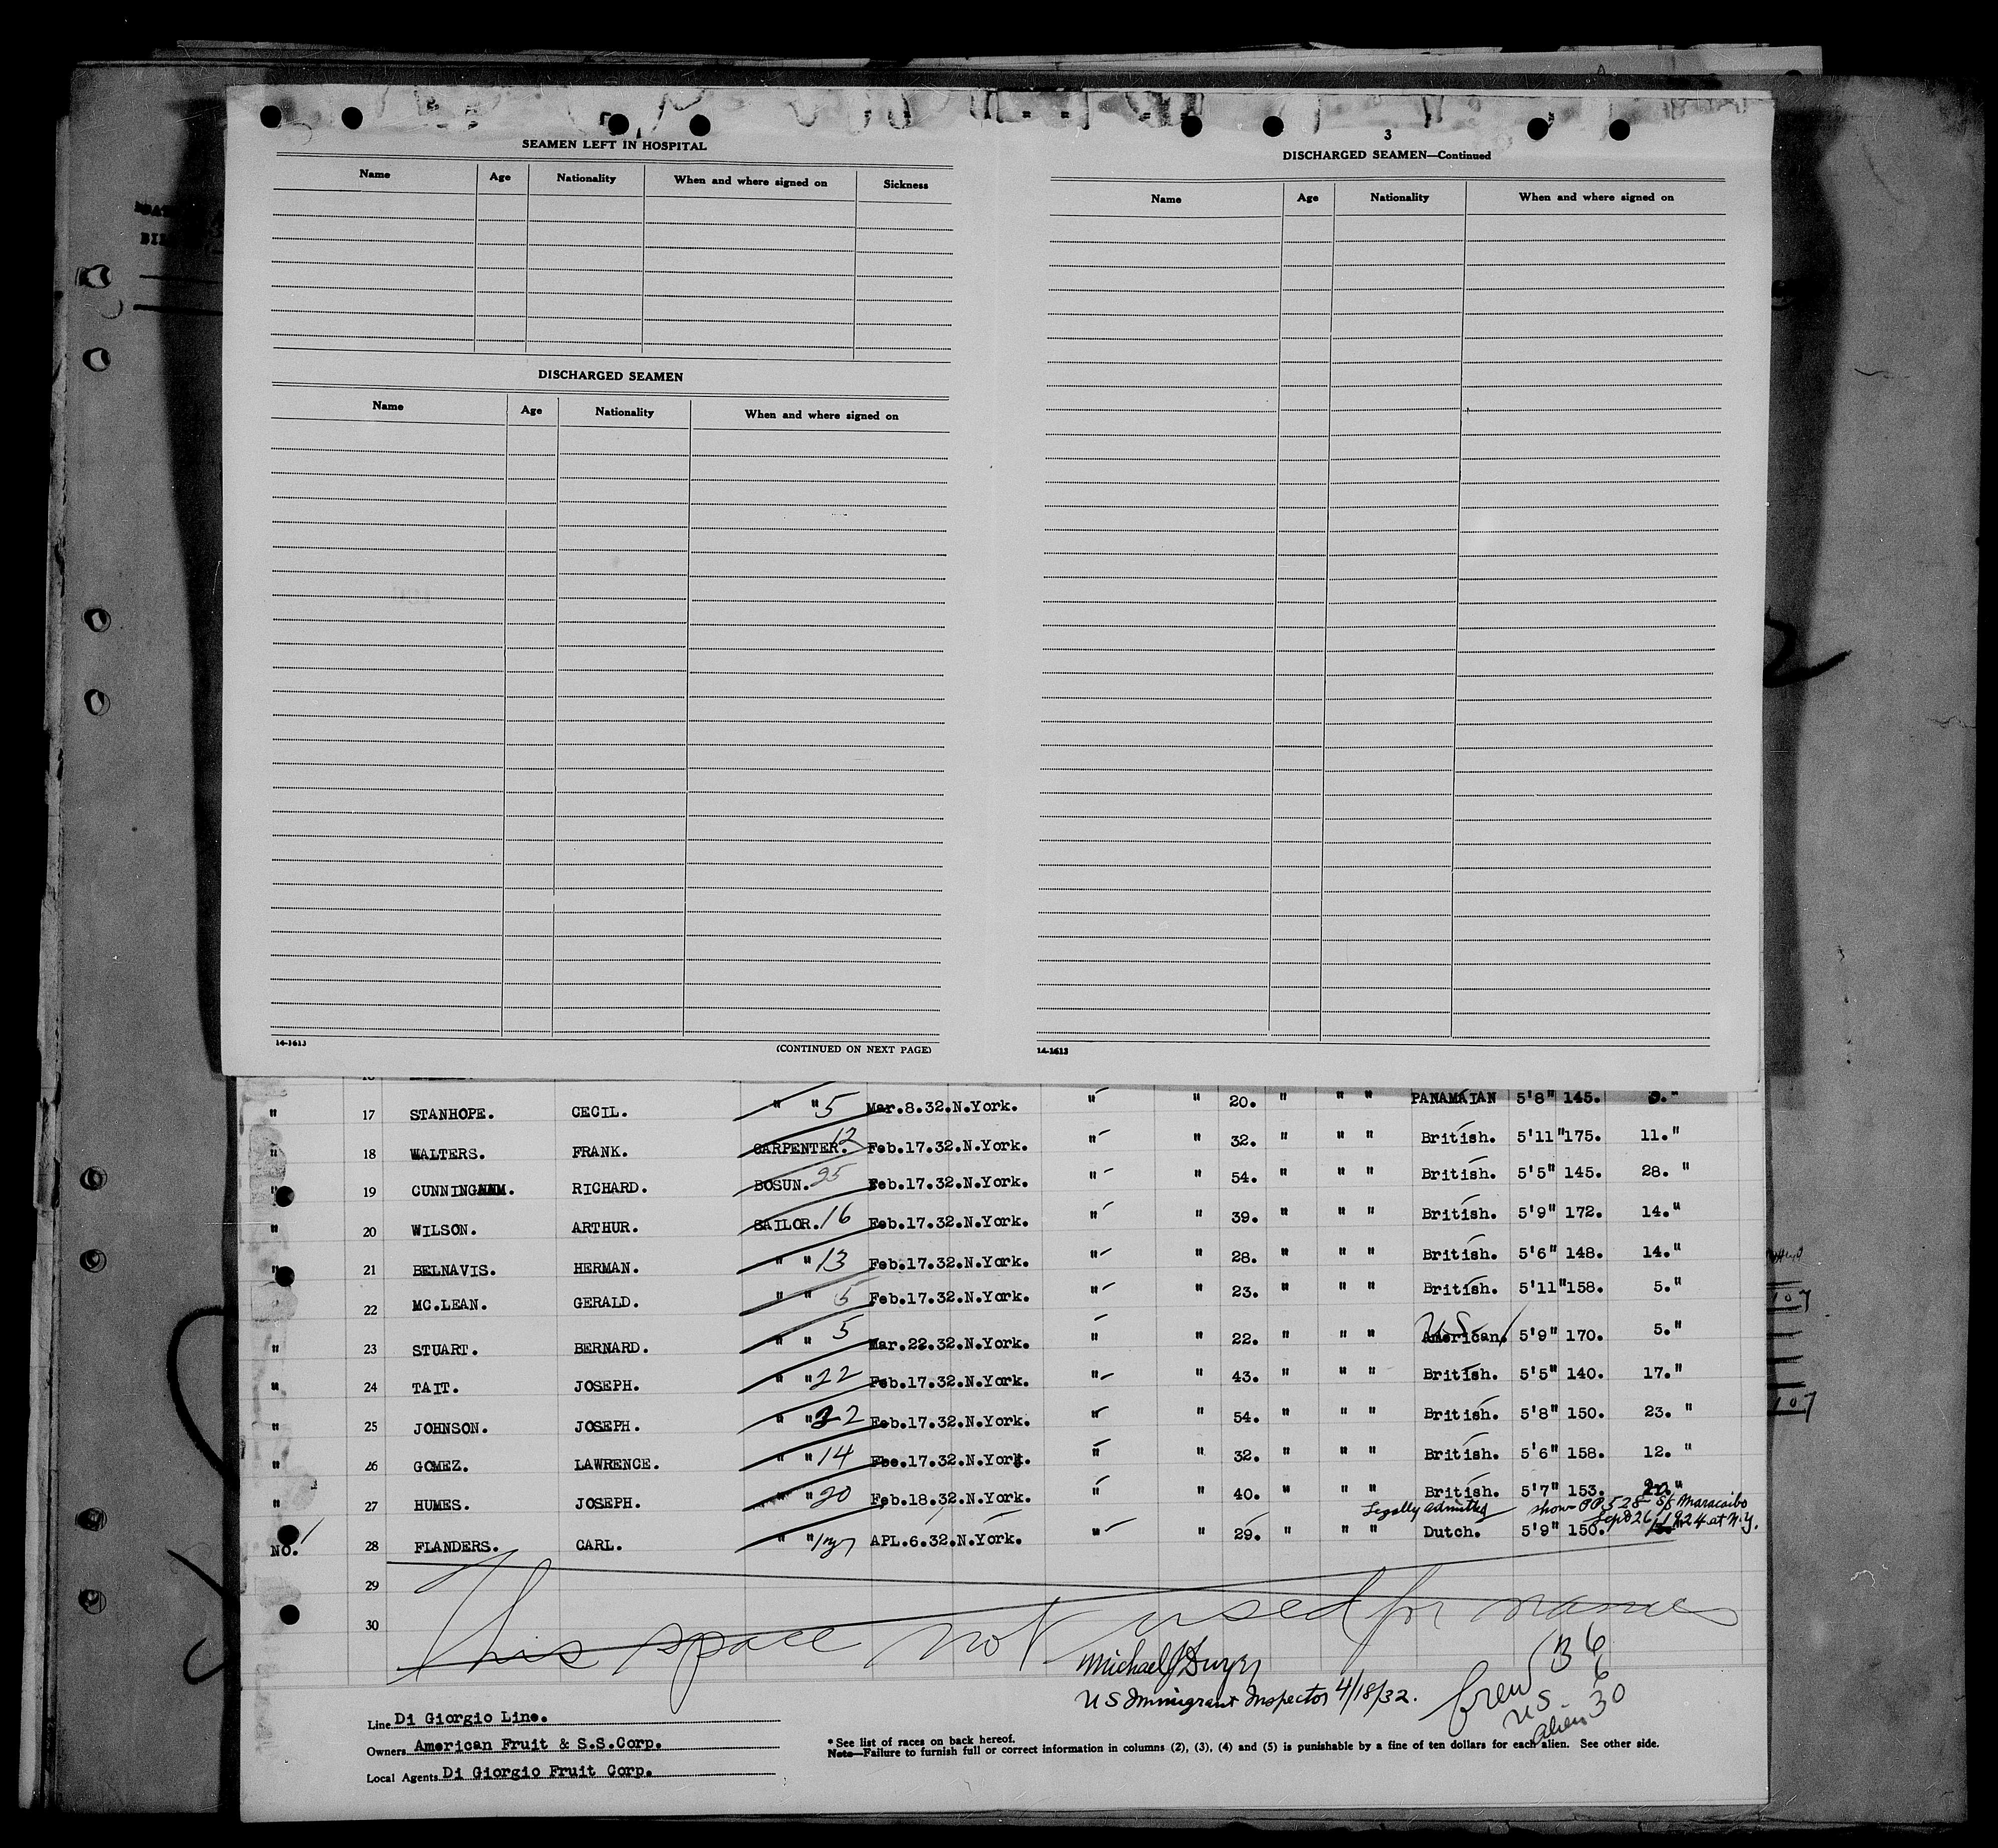 SEAMEN LEFT IN HOSPITAL
Name Age Nationality When and where signed on Sickness
DISCHARGED SEAMEN
Name Age Nationality When and where signed on
14-1613 (CONTINUED ON NEXT PAGE)
3
DISCHARGED SEAMEN—Continued
Name Age Nationality When and where signed on
14-1613
" 17 STANHOPE. CECIL. " " 5 Mar.8.32.N.York. " " 20. " " " PANAMAIAN 5'8" 145. "
" 18 WALTERS. FRANK. CARPENTER. 12 Feb.17.32.N.York. " " 32. " " " British. 5'11" 175. 11."
" 19 CUNNINGHAM. RICHARD. BOSUN. 25 Feb.17.32.N.York. " " 54. " " " British. 5'5" 145. 28. "
" 20 WILSON. ARTHUR. SAILOR. 16 Feb.17.32.N.York. " " 39. " " " British. 5'9" 172. 14."
" 21 BELNAVIS. HERMAN. " " 13 Feb.17.32.N.York. " " 28. " " " British. 5'6" 148. 14."
22 MC.LEAN. GERALD. " " 5 Feb.17.32.N.York. " " 23. " " " British. 5'11" 158. 5."
" 23 STUART. BERNARD. " " 5 Mar.22.32.N.York. " " 22. " " " U.S. American. 5'9" 170. 5."
" 24 TAIT. JOSEPH. " " 22 Feb.17.32.N.York. " " 43. " " " British. 5'5" 140. 17."
" 25 JOHNSON. JOSEPH. " " 22 Feb.17.32.N.York. " " 54. " " " British. 5'8" 150. 23. "
" 26 GOMEZ. LAWRENCE. " " 14 Fbe.17.32.N.York. " " 32. " " " British. 5'6" 158. 12. "
" 27 HUMES. JOSEPH. " " 20 Feb.18.32.N.York. " " 40. " " " British. 5'7" 153. 20."
Legally admitted show PP 528 S/S Maracaibo
Sep 26 1924 at N.Y.
No. 28 FLANDERS. CARL. " " 1 yr APL.6.32.N.York. " " 29. " " " Dutch. 5'9" 150.
29
30
This space not used for names
Michael J Dwyer
US Immigrant Inspector 4/18/32.
Crew 36
US. 6
alien 30
Line Di Giorgio Line.
Owners American Fruit & S.S.Corp.
Local Agents Di Giorgio Fruit Corp.
* See list of races on back hereof.
Note—Failure to furnish full or correct information in columns (2), (3), (4) and (5) is punishable by a fine of ten dollars for each alien. See other side.